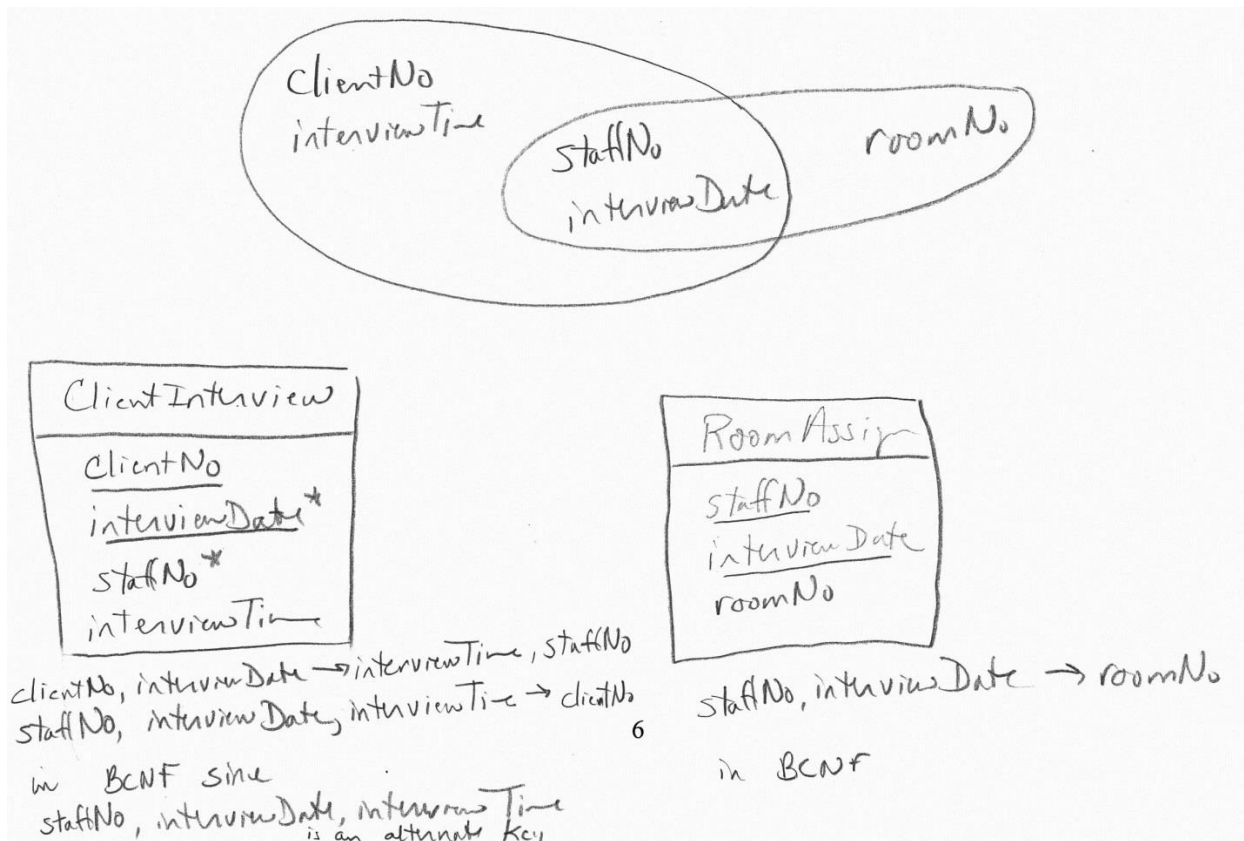 clientNo
interviewTime
staffNo
interviewDate
roomNo
ClientInterview
clientNo
interviewDate*
staffNo*
interviewTime
clientNo, interviewDate → interviewTime, staffNo
staffNo, interviewDate, interviewTime → clientNo
in BCNF since
staffNo, interviewDate, interviewTime
is an alternate key
RoomAssign
staffNo
interviewDate
roomNo
staffNo, interviewDate → roomNo
in BCNF
6